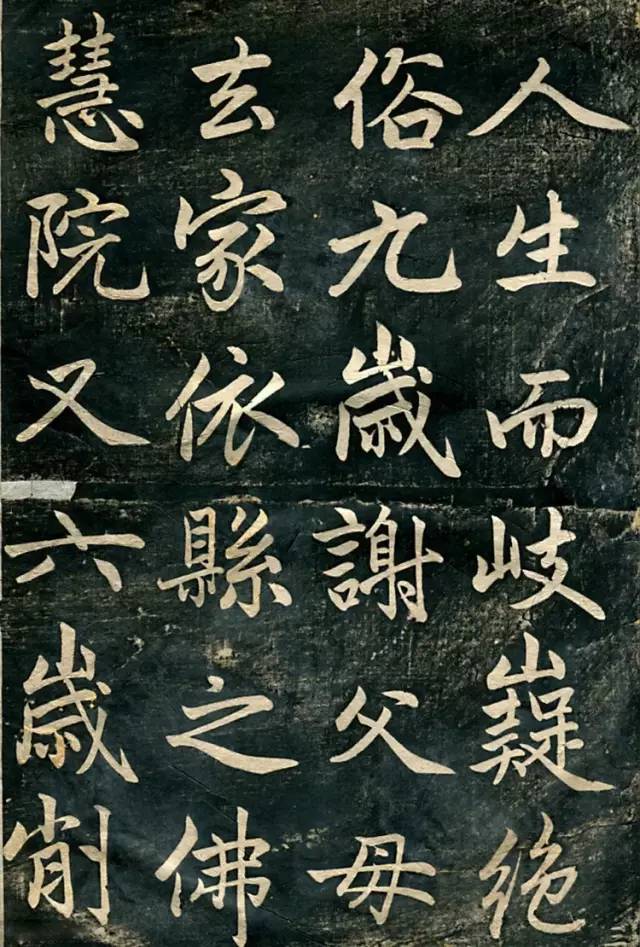 人生而岐嶷絶
俗九歲謝父母
去家依縣之佛
慧院又六歲削